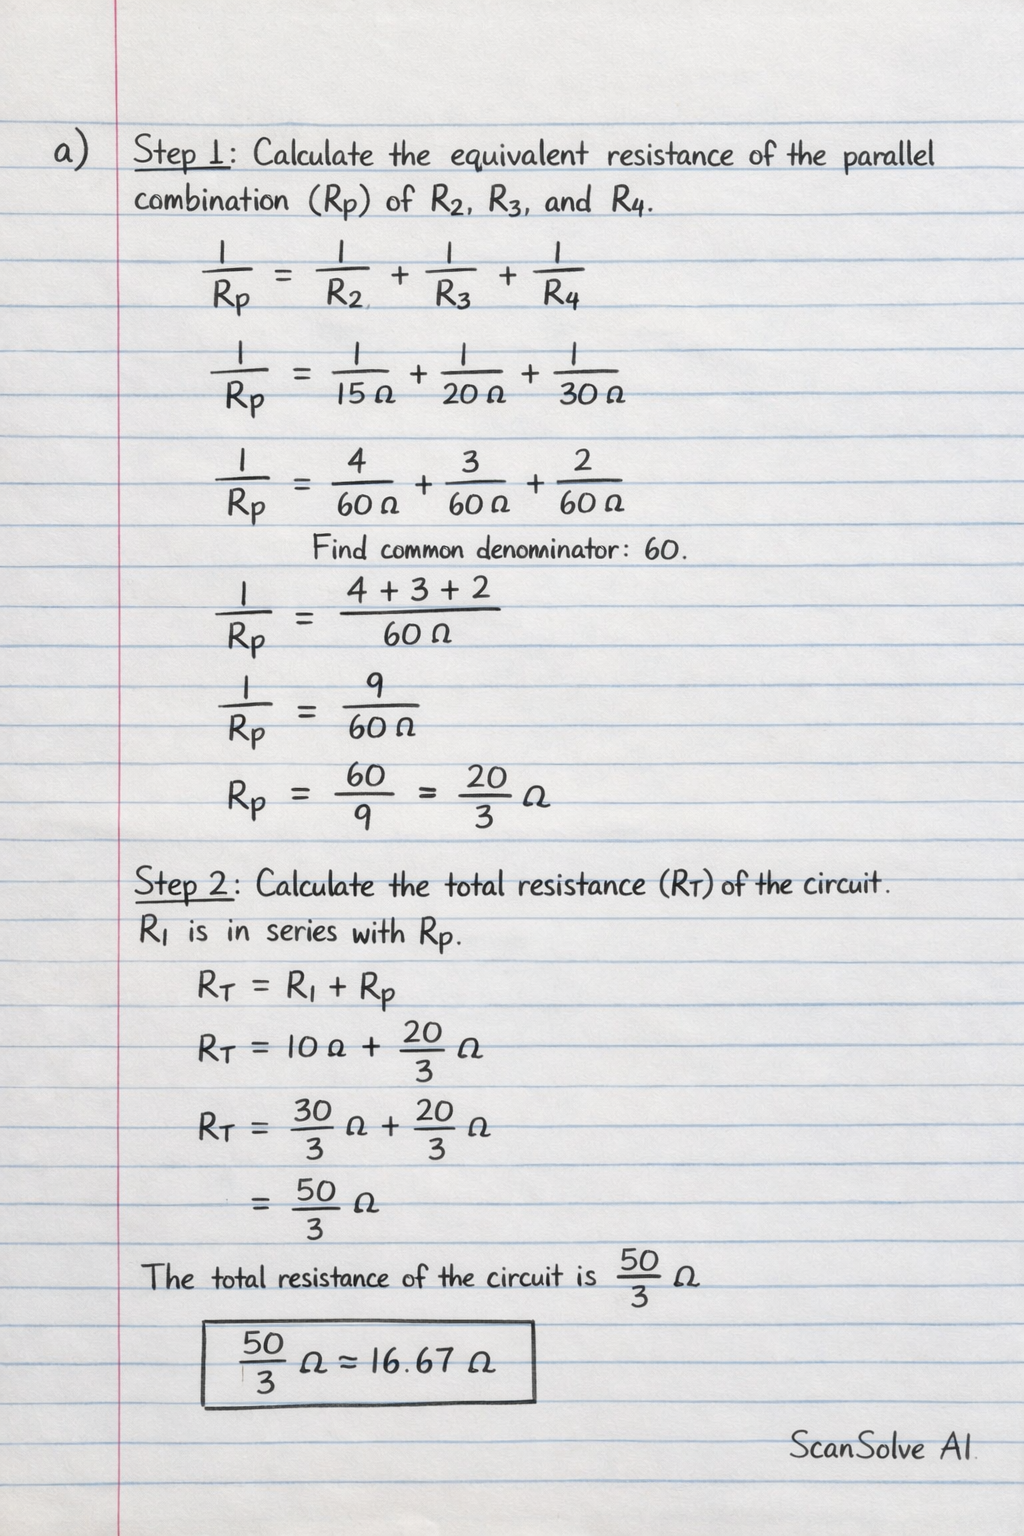 a) Step 1: Calculate the equivalent resistance of the parallel
combination (Rp) of R2, R3, and R4.
1/Rp = 1/R2 + 1/R3 + 1/R4
1/Rp = 1/15 Ω + 1/20 Ω + 1/30 Ω
1/Rp = 4/60 Ω + 3/60 Ω + 2/60 Ω
Find common denominator: 60.
1/Rp = 4 + 3 + 2/60 Ω
1/Rp = 9/60 Ω
Rp = 60/9 = 20/3 Ω
Step 2: Calculate the total resistance (RT) of the circuit.
R1 is in series with Rp.
RT = R1 + Rp
RT = 10 Ω + 20/3 Ω
RT = 30/3 Ω + 20/3 Ω
= 50/3 Ω
The total resistance of the circuit is 50/3 Ω
50/3 Ω ≈ 16.67 Ω
ScanSolve AI